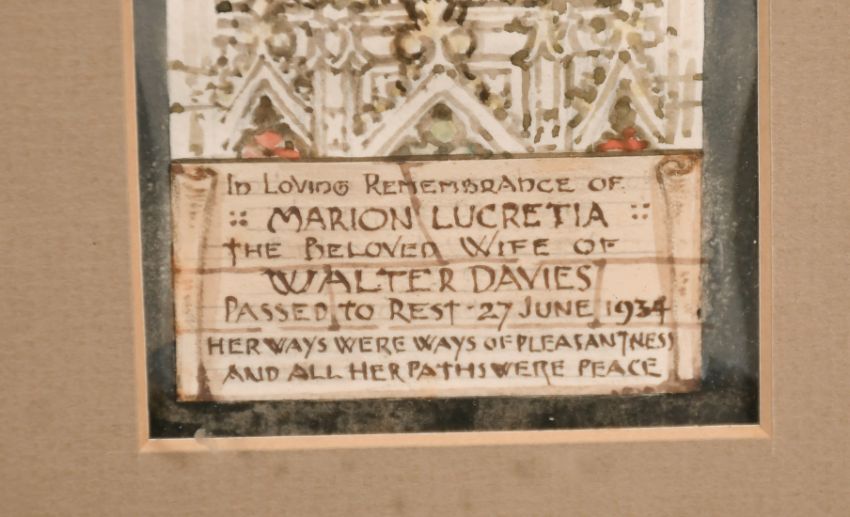 In Loving Remembrance of
:: MARION LUCRETIA ::
the Beloved Wife of
WALTER DAVIES
Passed to Rest · 27 JUNE 1934
HER WAYS WERE WAYS OF PLEASANTNESS
AND ALL HER PATHS WERE PEACE